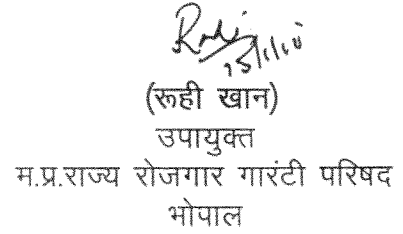 (रूही खान)
उपायुक्त
म.प्र.राज्य रोजगार गारंटी परिषद
भोपाल